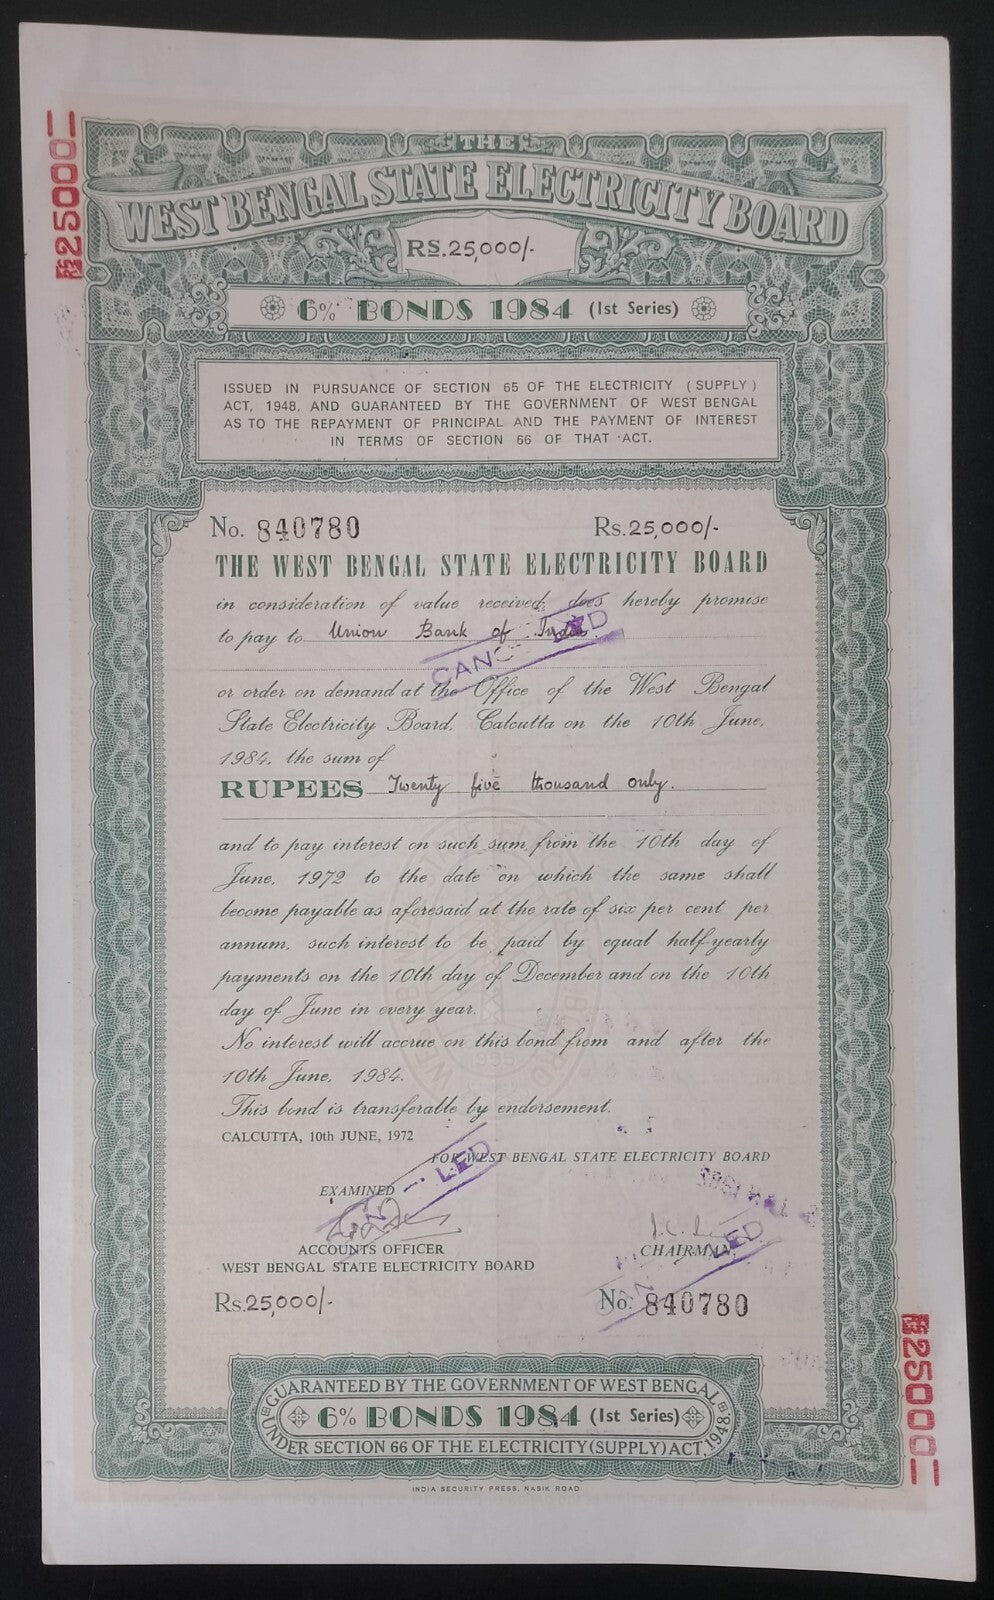 ₨25000
THE
WEST BENGAL STATE ELECTRICITY BOARD
RS.25,000/-
6% BONDS 1984 (Ist Series)
ISSUED IN PURSUANCE OF SECTION 65 OF THE ELECTRICITY (SUPPLY)
ACT, 1948, AND GUARANTEED BY THE GOVERNMENT OF WEST BENGAL
AS TO THE REPAYMENT OF PRINCIPAL AND THE PAYMENT OF INTEREST
IN TERMS OF SECTION 66 OF THAT ACT.
No. 840780 Rs.25,000/-
THE WEST BENGAL STATE ELECTRICITY BOARD
in consideration of value received, does hereby promise
to pay to Union Bank of India
or order on demand at the Office of the West Bengal
State Electricity Board, Calcutta on the 10th June,
1984, the sum of
RUPEES Twenty five thousand only.
and to pay interest on such sum from the 10th day of
June, 1972 to the date on which the same shall
become payable as aforesaid at the rate of six per cent per
annum, such interest to be paid by equal half-yearly
payments on the 10th day of December and on the 10th
day of June in every year.
No interest will accrue on this bond from and after the
10th June, 1984.
This bond is transferable by endorsement.
CALCUTTA, 10th JUNE, 1972
FOR WEST BENGAL STATE ELECTRICITY BOARD
EXAMINED
ACCOUNTS OFFICER CHAIRMAN
WEST BENGAL STATE ELECTRICITY BOARD
Rs.25,000/- No. 840780
₨25000
GUARANTEED BY THE GOVERNMENT OF WEST BENGAL
6% BONDS 1984 (Ist Series)
UNDER SECTION 66 OF THE ELECTRICITY (SUPPLY) ACT, 1948.
INDIA SECURITY PRESS, NASIK ROAD